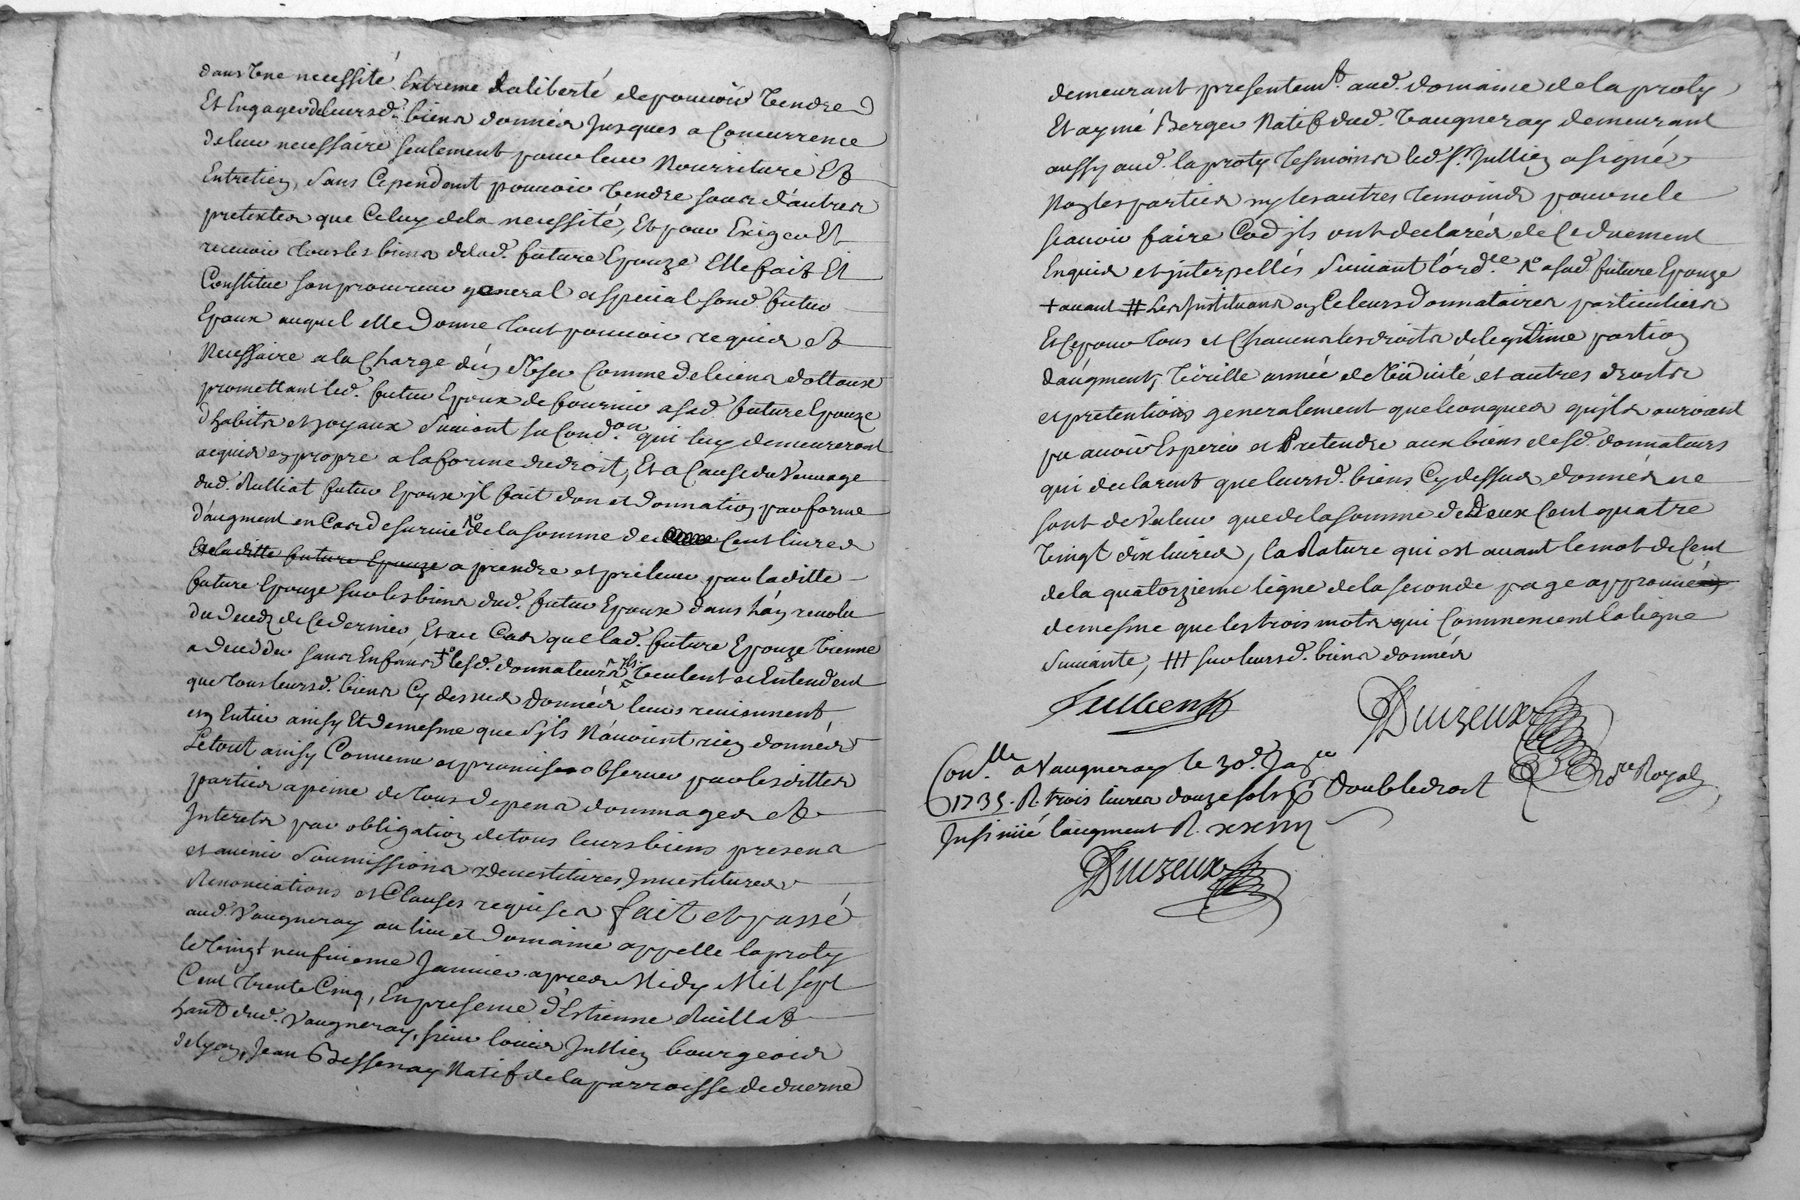 dans Une necessité Extreme La liberté de pouvoir Vendre
Et Engager de leursd. biens donnés Jusques a Concurrence
de leur necessaire seulement pour leur Nourriture Et
Entretien, sans Cependant pouvoir Vendre sous d'autres
pretextes que Celuy de la necessité, Et pour Exiger Et
recevoir tous les biens de lad. future Epouze Elle fait Et
Constitue son procureur general et special sond. futur
Epoux auquel elle Donne tout pouvoir requis et
Necessaire a la Charge d'en User Comme de biens dottaux
promettant led. futur Epoux de fournir a sad. future Epouze
d'habits et joyaux suivant sa Cond.on qui luy demeureront
acquis en propre a la forme du droit, Et a Cause du Veuvage
dud. Rulliat futur Epoux il fait don et donnation par forme
d'augment en Cas de survie de la somme de Cent livres
de laditte future Epouze a prendre et prelever par laditte
future Epouze sur les biens dud. futur Epoux dans l'an revolu
du deceds de Ce dernier, Et au Cas que lad. future Epouze Vienne
a deceder sans Enfans lesd. donnateurs Veulent et Entendent
que tous leursd. biens Cy dessus donnés leurs reviennent
en Entier ainsy Et de mesme que s'ils N'avoient rien donnés
Le tout ainsy Convenu et promis observer par lesdittes
parties a peine de tous depens dommages et
Interets par obligation de tous leurs biens presens
et avenir soumissions devestitures Investitures
Renonciations et Clauses requises fait et passé
aud. Vaugneray au lieu et Domaine appellé laproty
le Vingt neufvieme Janvier apres Midy Mil sept
Cent trente Cinq, En presence d'Estienne Ruillat
hant dud. Vaugneray, sieur louis Jullien bourgeois
de lyon, Jean Bessenay Natif de la parroisse de duerne
demeurant presentem.t aud. domaine de laproty
Et aymé Berger Natif dud. Vaugneray demeurant
aussy aud. laproty tesmoins led. s.r Jullien a signé
Non les parties ny les autres temoins pour ne le
scavoir faire Ce qu'ils ont declarés de Ce duement
Enquis et interpellés suivant l'ord.ce a sad. future Epouze
+ avant # Les Instituans en Ce leurs donnataires particuliers
Et Ce pour tous et Chacuns les droits de legitime portion
d'augment, Virille année de Viduité et autres droits
et pretentions generalement quelconques qu'ils auroient
pu avoir Esperer et Pretendre aux biens desd. donnateurs
qui declarent que leursd. biens Cy dessus donnés ne
sont de Valeur que de la somme de Deux Cent quatre
Vingt dix livres, la Rature qui est avant le mot de Cent
de la quatorzieme ligne de la seconde page approuvée
de mesme que les trois mots qui Commencent la ligne
suivante, ### sur leursd. biens donnés
Jullien
Duizeux
no.re Royal
Con.lle a Vaugneray le 30.e Ja.er
1735. R. trois livres douze sols Double droit
Insinué l'augment R.
Duizeux